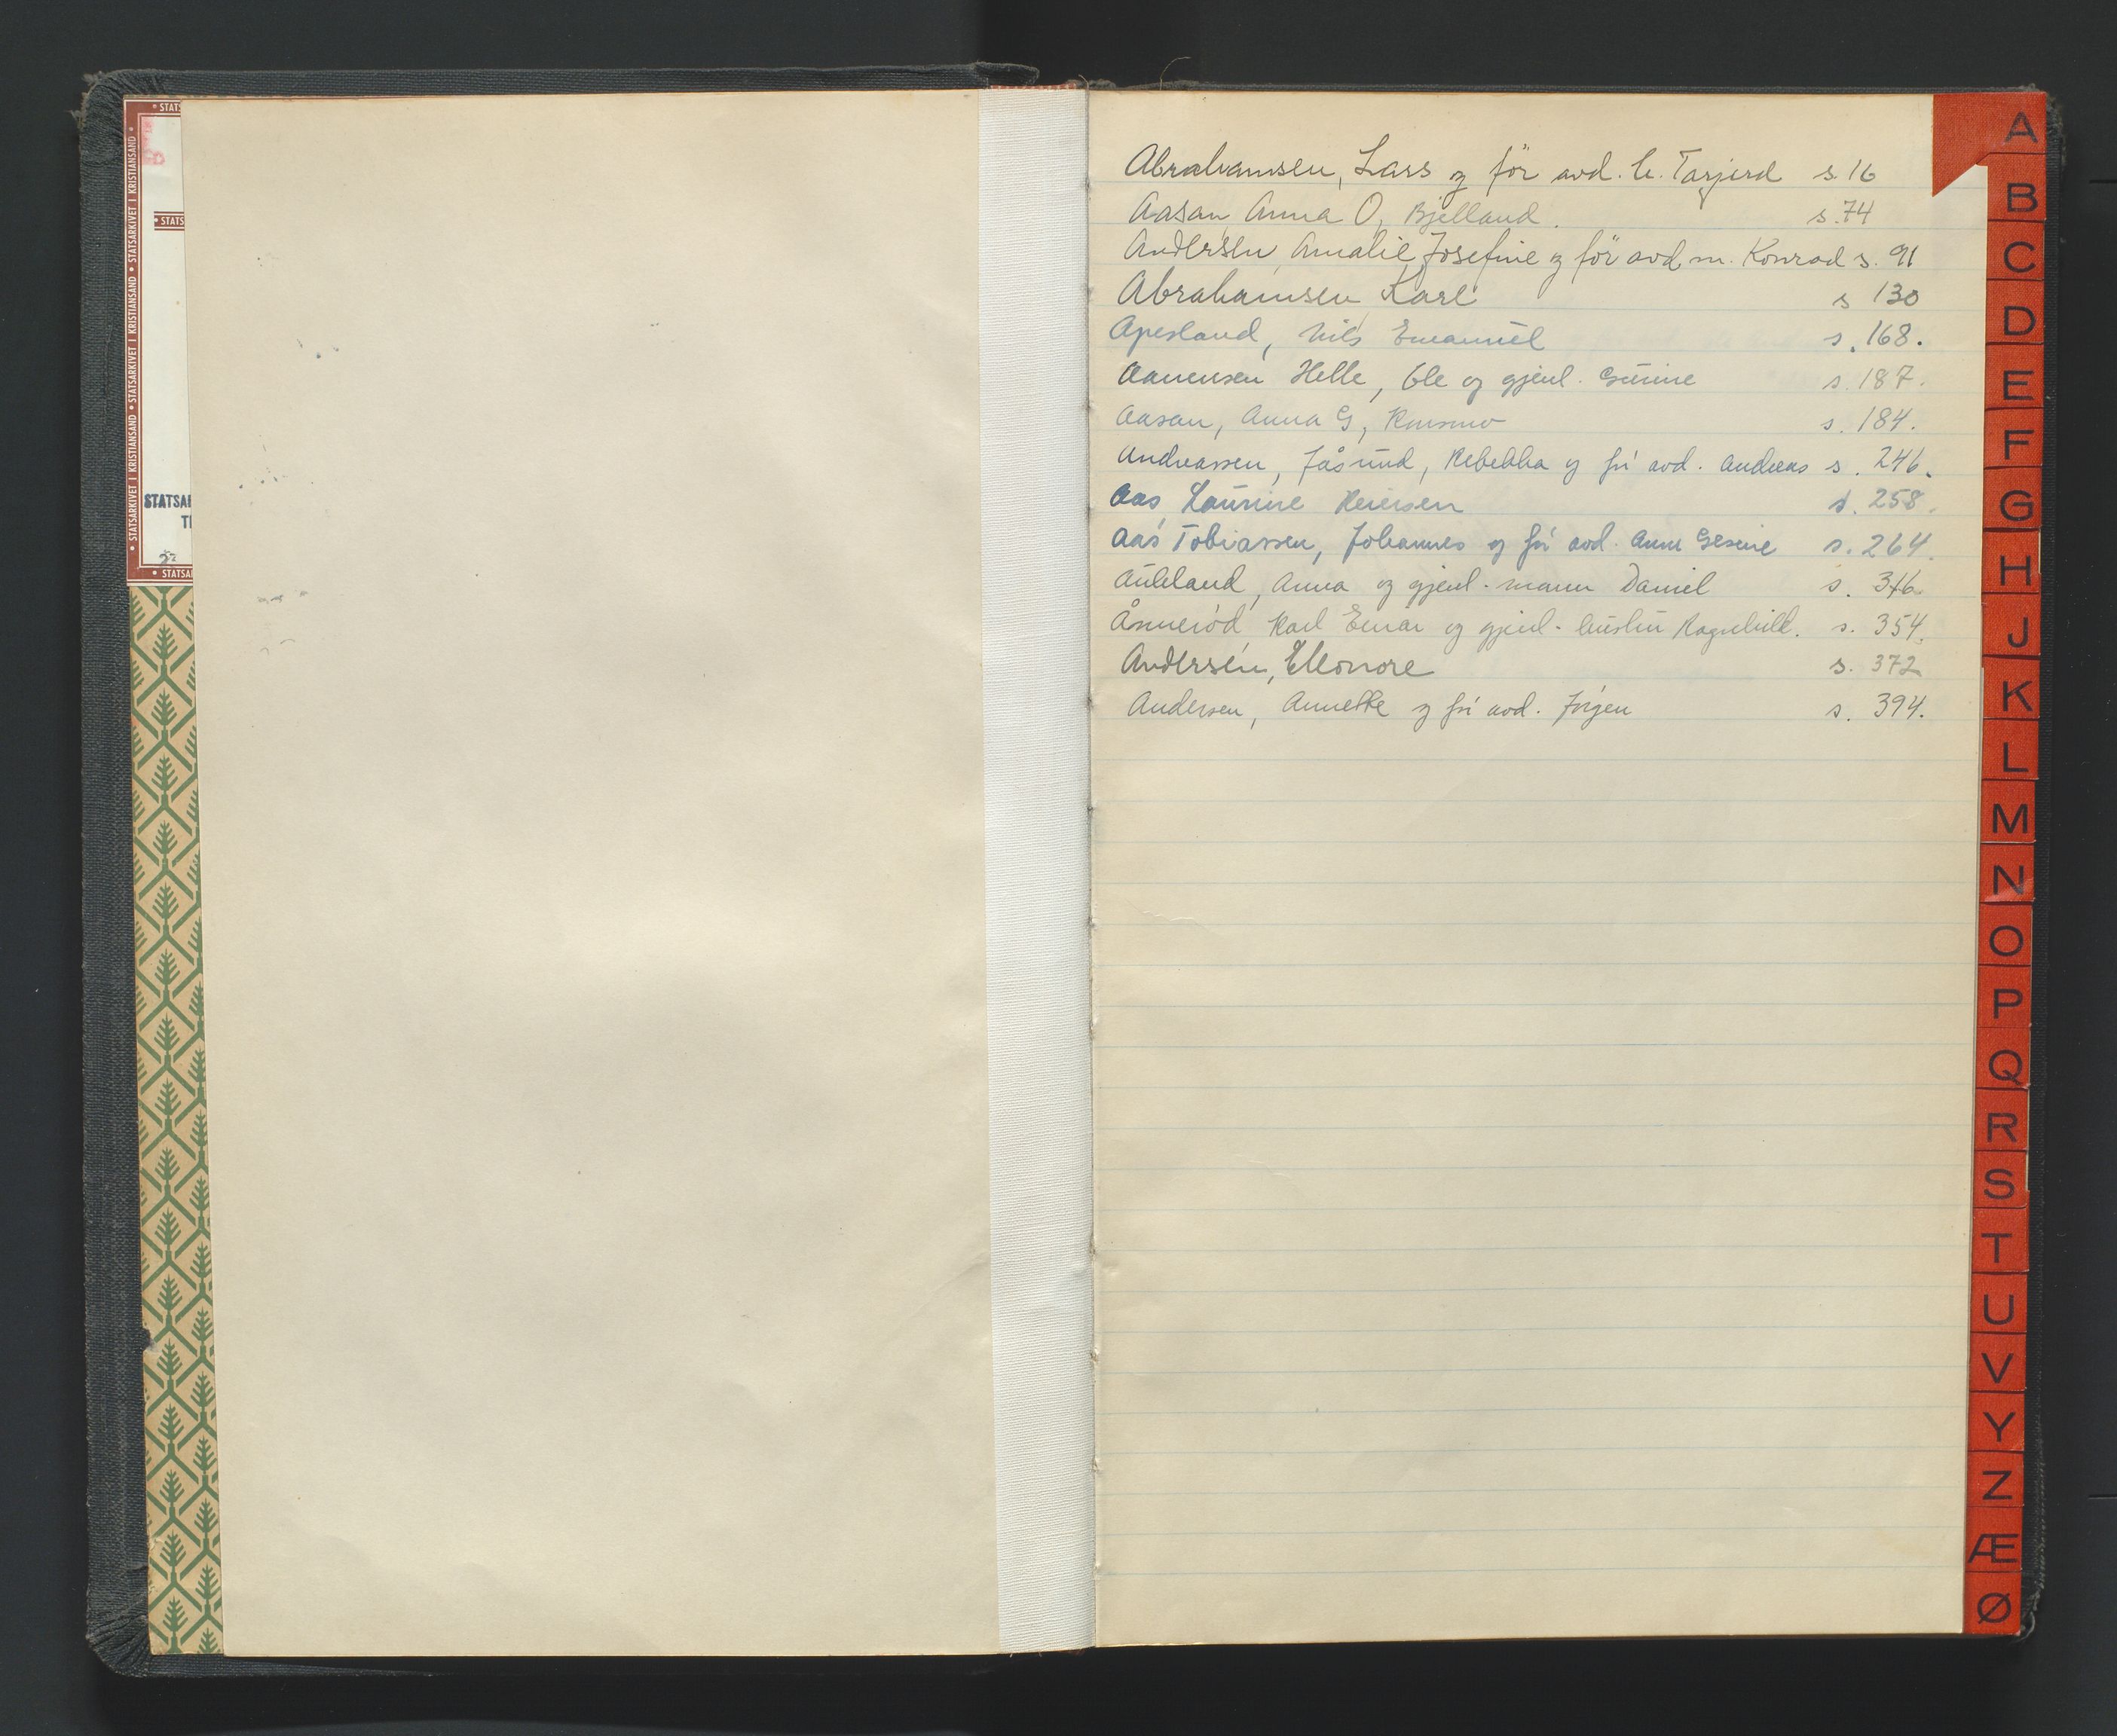 • STATS
• STATS
STATSARKIVET I KRISTIANSAND • STATSARKIVET I KRISTIANSAND • STATSARKIVET I KRISTIANSAND •
STATSAR
T
22
• STATSA
Abrahamsen, Lars og før avd. h. Tarjerd s. 16
Aasan, Anna O, Bjelland. s. 74
Andersen, Amalie Josefine og før avd m. Konrad s. 91
Abrahamsen Karl s 130
Apesland, Nils Emanuel s. 168.
Aanensen Helle, Ole og gjenl. Gurine s. 187.
Aasan, Anna G, Konsmo s. 184.
Andreassen, Jåsund, Rebekka og før avd. Andreas s. 246.
Aas Laurine Reiersen s. 258.
Aas Tobiassen, Johannes og før avd. Anne Gesine s. 264.
Aukland, Anna og gjenl. mann Daniel s. 346
Ånnerød Karl Einar og gjenl. hustru Ragnhild. s. 354.
Andersen, Eleonore s. 372
Andersen, Annette og før avd. Jörgen s. 394.
A
B
C
D
E
F
G
H
J
K
L
M
N
O
P
Q
R
S
T
U
V
Y
Z
Æ
Ø